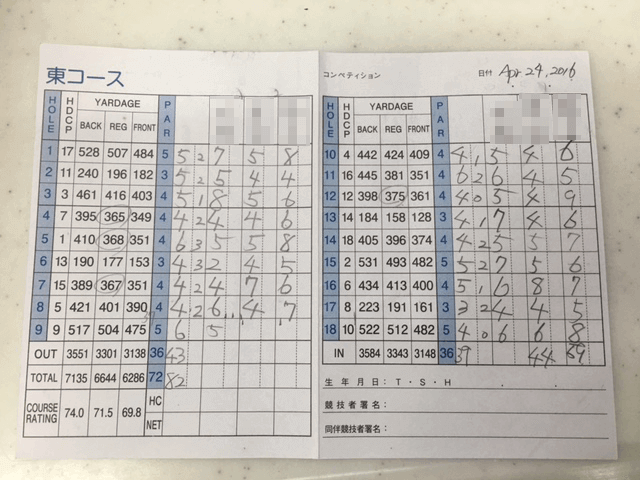 東コース
HOLE HDCP YARDAGE PAR
BACK REG FRONT
1 17 528 507 484 5 5 2 7 5 8
2 11 240 196 182 3 5 2 5 4 4
3 3 461 416 403 4 5 1 8 5 6
4 7 395 365 349 4 4 2 4 4 6
5 1 410 368 351 4 6 3 5 5 8
6 13 190 177 153 3 4 3 2 4 5
7 15 389 367 351 4 4 2 4 7 6
8 5 421 401 390 4 4 2 6 4 7
9 9 517 504 475 5 6 5
OUT 3551 3301 3138 36 43
TOTAL 7135 6644 6286 72 82
COURSE RATING 74.0 71.5 69.8 HC
NET
コンペティション 日付 Apr 24, 2016
HOLE HDCP YARDAGE PAR
BACK REG FRONT
10 4 442 424 409 4 4 1 5 4 6
11 16 445 381 351 4 6 2 6 4 5
12 12 398 375 361 4 4 0 5 4 9
13 14 184 158 128 3 4 1 7 4 6
14 18 405 396 374 4 4 2 5 5 7
15 2 531 493 482 5 5 2 7 5 6
16 6 434 413 400 4 5 1 6 8 7
17 8 223 191 161 3 3 2 4 4 5
18 10 522 512 482 5 4 0 6 6 8
IN 3584 3343 3148 36 39 44 59
生年月日：T・S・H
競技者署名：
同伴競技者署名：